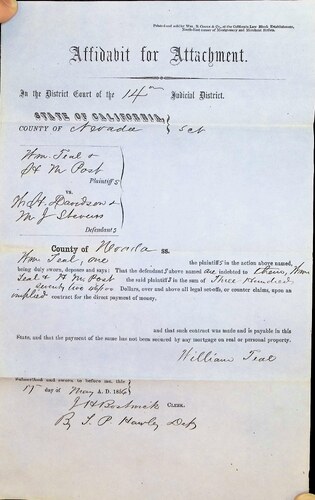 Printed and sold by Wm. B. Cooke & Co., at the California Law Blank Establishment,
North-East corner of Montgomery and Merchant Streets.
Affidavit for Attachment.
In the District Court of the 14th Judicial District.
STATE OF CALIFORNIA,
COUNTY OF Nevada sct
Wm. Teal &
H M Post
Plaintiffs
vs.
W. H. Davidson &
M J Stevens
Defendants
County of Nevada ss.
Wm. Teal, one the plaintiffs in the action above named,
being duly sworn, deposes and says: That the defendants above named are indebted to them, Wm.
Teal & H M Post the said plaintiffs in the sum of Three Hundred
seventy two Dollars, over and above all legal set-offs, or counter claims, upon an
implied contract for the direct payment of money.
and that such contract was made and is payable in this
State, and that the payment of the same has not been secured by any mortgage on real or personal property.
William Teal
Subscribed and sworn to before me, this
17 day of May A. D. 1856
J H Bostwick CLERK.
By T. P. Hawley Dep